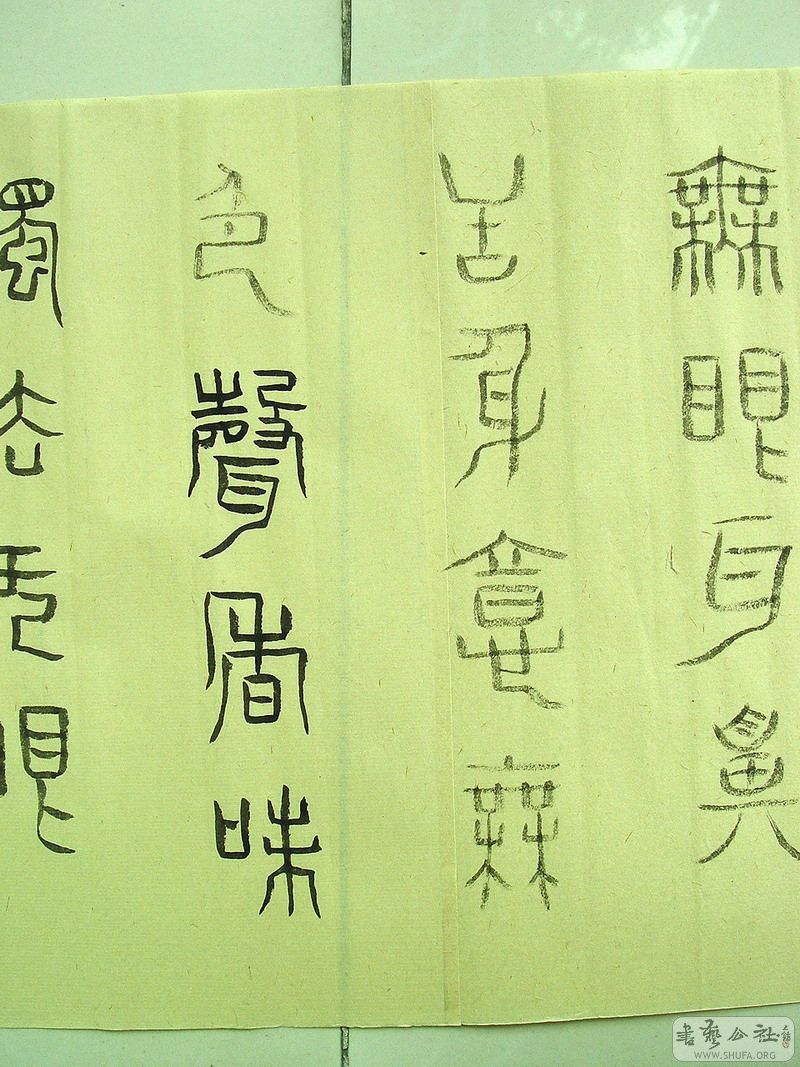 無眼耳鼻
舌身意無
色聲香味
觸法无眼
書藝公社
WWW.SHUFA.ORG